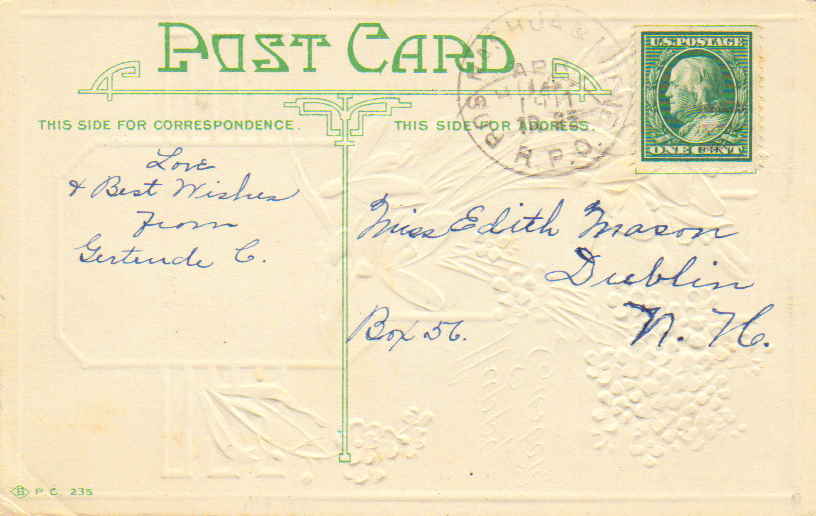 POST CARD
THIS SIDE FOR CORRESPONDENCE.
THIS SIDE FOR ADDRESS.
U.S. POSTAGE
ONE CENT
APR
1911
R.P.O.
Love
& Best Wishes
From
Gertrude C.
Miss Edith Mason
Dublin
Box 56.
N. H.
P. C. 235